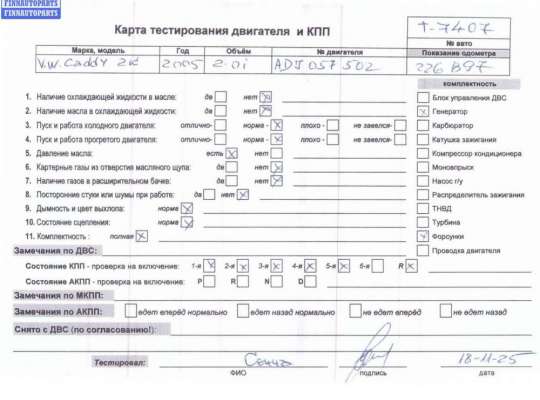 FINNAUTOPARTS
Карта тестирования двигателя и КПП
T-7407
№ авто
Марка, модель Год Объём № двигателя Показание одометра
V.W. Caddy 2K 2005 2.0i ADJ 057502 226 897
комплектность
1. Наличие охлаждающей жидкости в масле: да нет Блок управления ДВС
2. Наличие масла в охлаждающей жидкости: да нет Генератор
3. Пуск и работа холодного двигателя: отлично- норма - плохо - не завелся- Карбюратор
4. Пуск и работа прогретого двигателя: отлично- норма - плохо - не завелся- Катушка зажигания
5. Давление масла: есть нет Компрессор кондиционера
6. Картерные газы из отверстия масляного щупа: да нет Моновпрыск
7. Наличие газов в расширительном бачке: да нет Насос г/у
8. Посторонние стуки или шумы при работе: да нет Распределитель зажигания
9. Дымность и цвет выхлопа: норма ТНВД
10. Состояние сцепления: норма Турбина
11. Комплектность : полная Форсунки
Замечания по ДВС: Проводка двигателя
Состояние КПП - проверка на включение: 1-я 2-я 3-я 4-я 5-я 6-я R
Состояние АКПП - проверка на включение: P R N D
Замечания по МКПП:
Замечания по АКПП: едет вперёд нормально едет назад нормально не едет вперёд не едет назад
Снято с ДВС (по согласованию!):
Тестировал: 18-11-25
ФИО подпись дата